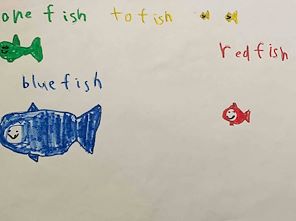 one fish to fish
red fish
blue fish